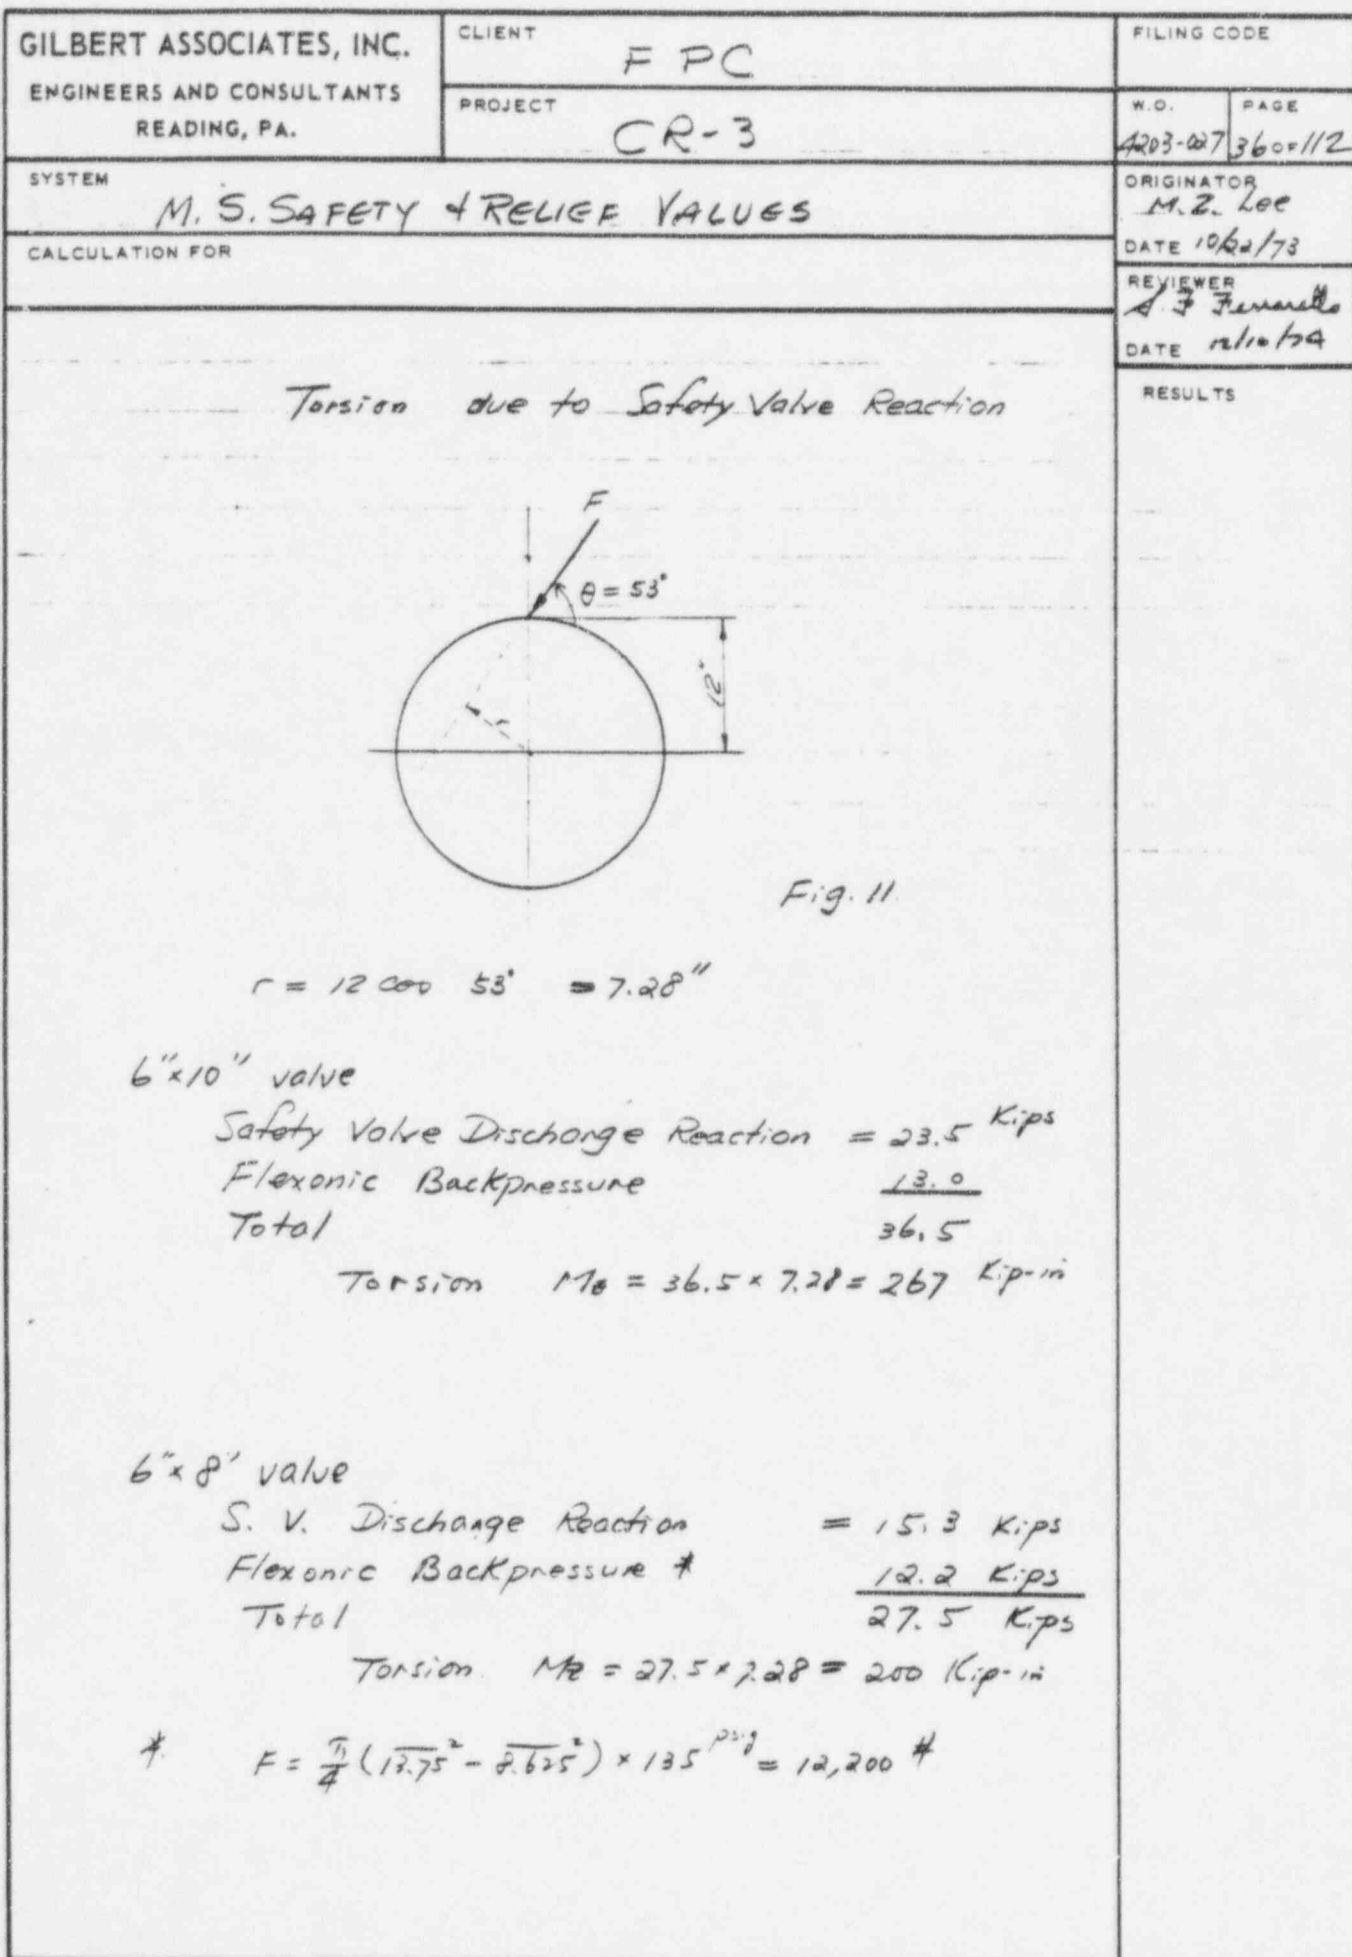 GILBERT ASSOCIATES, INC.
ENGINEERS AND CONSULTANTS
READING, PA.
CLIENT
F P C
PROJECT
CR-3
FILING CODE
W.O.
4203-027
PAGE
36 OF 112
SYSTEM
M. S. SAFETY & RELIEF VALUES
ORIGINATOR
M.Z. Lee
DATE 10/22/73
CALCULATION FOR
REVIEWER
DATE 12/10/74
RESULTS
Torsion due to Safety Valve Reaction
F
θ = 53°
12"
r
Fig. 11
r = 12 cos 53° = 7.28"
6"x10" valve
Safety Valve Discharge Reaction = 23.5 Kips
Flexonic Backpressure 13.0
Total 36.5
Torsion Mθ = 36.5 x 7.28 = 267 Kip-in
6"x 8" valve
S. V. Discharge Reaction = 15.3 Kips
Flexonic Backpressure * 12.2 Kips
Total 27.5 Kips
Torsion Mz = 27.5 x 7.28 = 200 Kip-in
* F = π/4 (13.75² - 8.625²) x 135 psig = 12,200 #